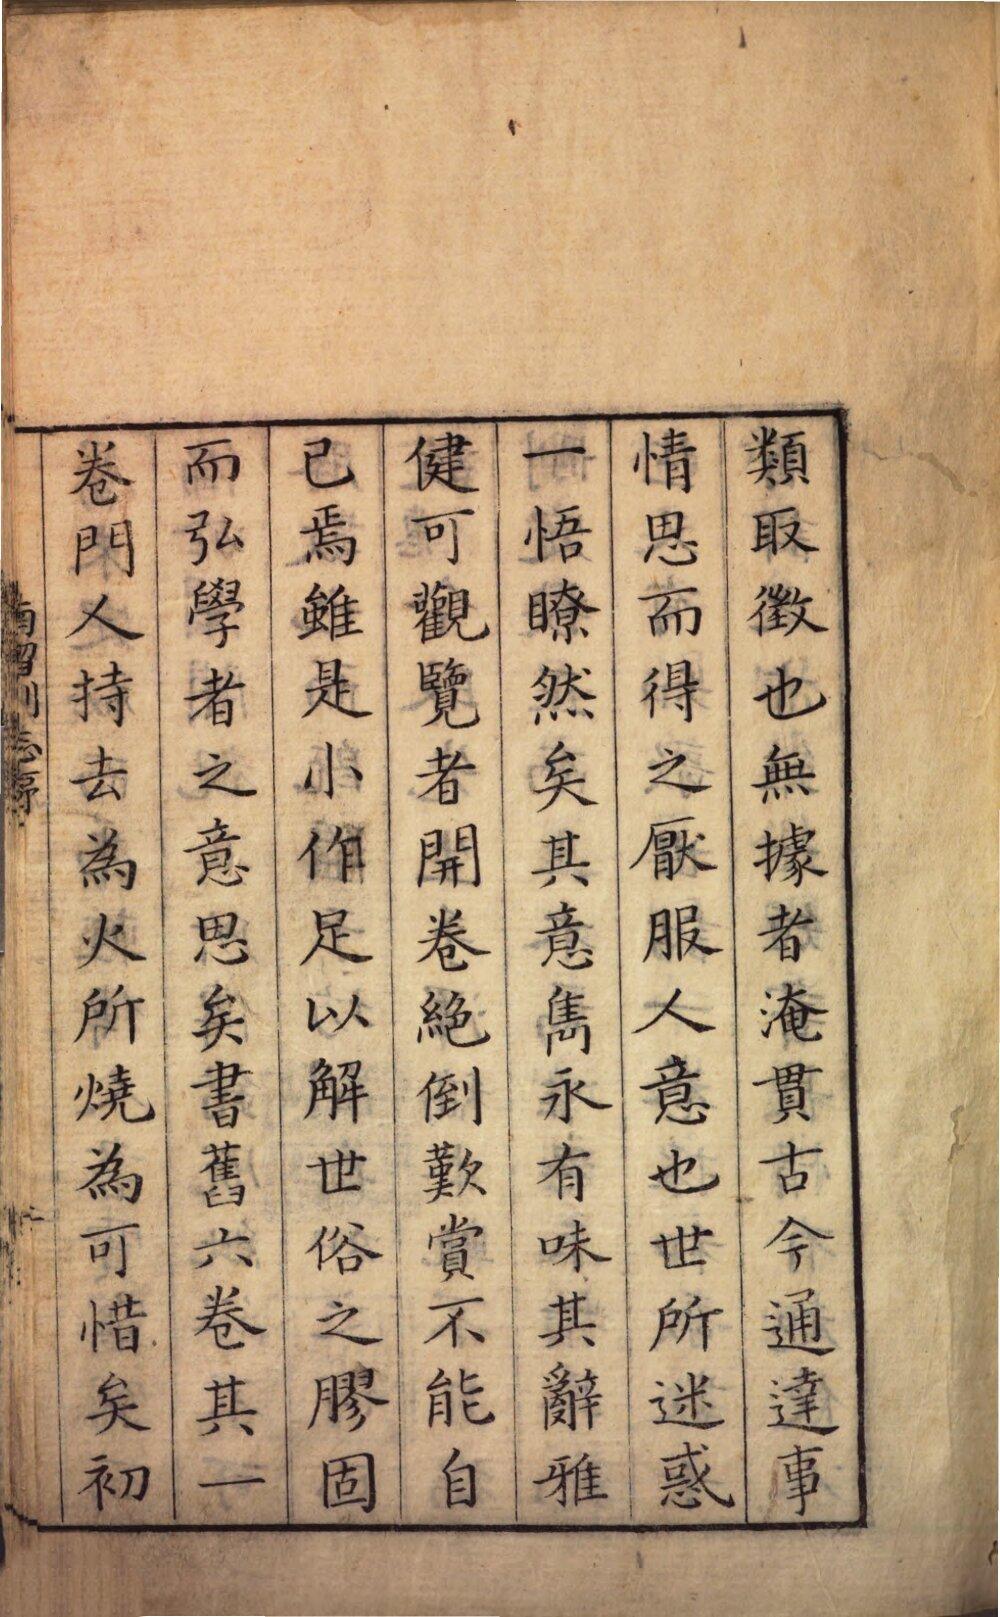 類取徵也無據者淹貫古今通達事
情思而得之厭服人意也世所迷惑
一悟瞭然矣其意雋永有味其辭雅
健可觀覽者開卷絕倒歎賞不能自
已焉雖是小作足以解世俗之膠固
而弘學者之意思矣書舊六卷其一
卷門人持去為火所燒為可惜矣初